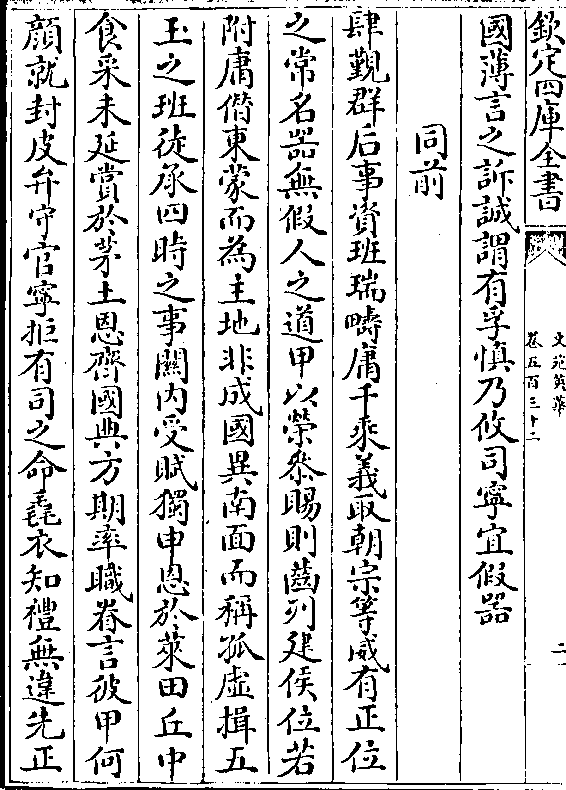 欽定四庫全書
文苑英華
卷五百三十二
二
國薄言之訴誠謂有孚慎乃攸司寧宜假器
同前
肆覲群后事資班瑞疇庸千乘義取朝宗等威有正位
之常名器無假人之道甲以榮叅賜則齒列建侯位若
附庸僣東蒙而為主地非成國異南面而稱孤虛揖五
玉之班徒承四時之事闗内受賦獨申恩於萊田丘中
食采未延賞於茅土恩齊國典方期率職眷言彼甲何
顔就封皮弁守官寧拒有司之命毳衣知禮無違先正